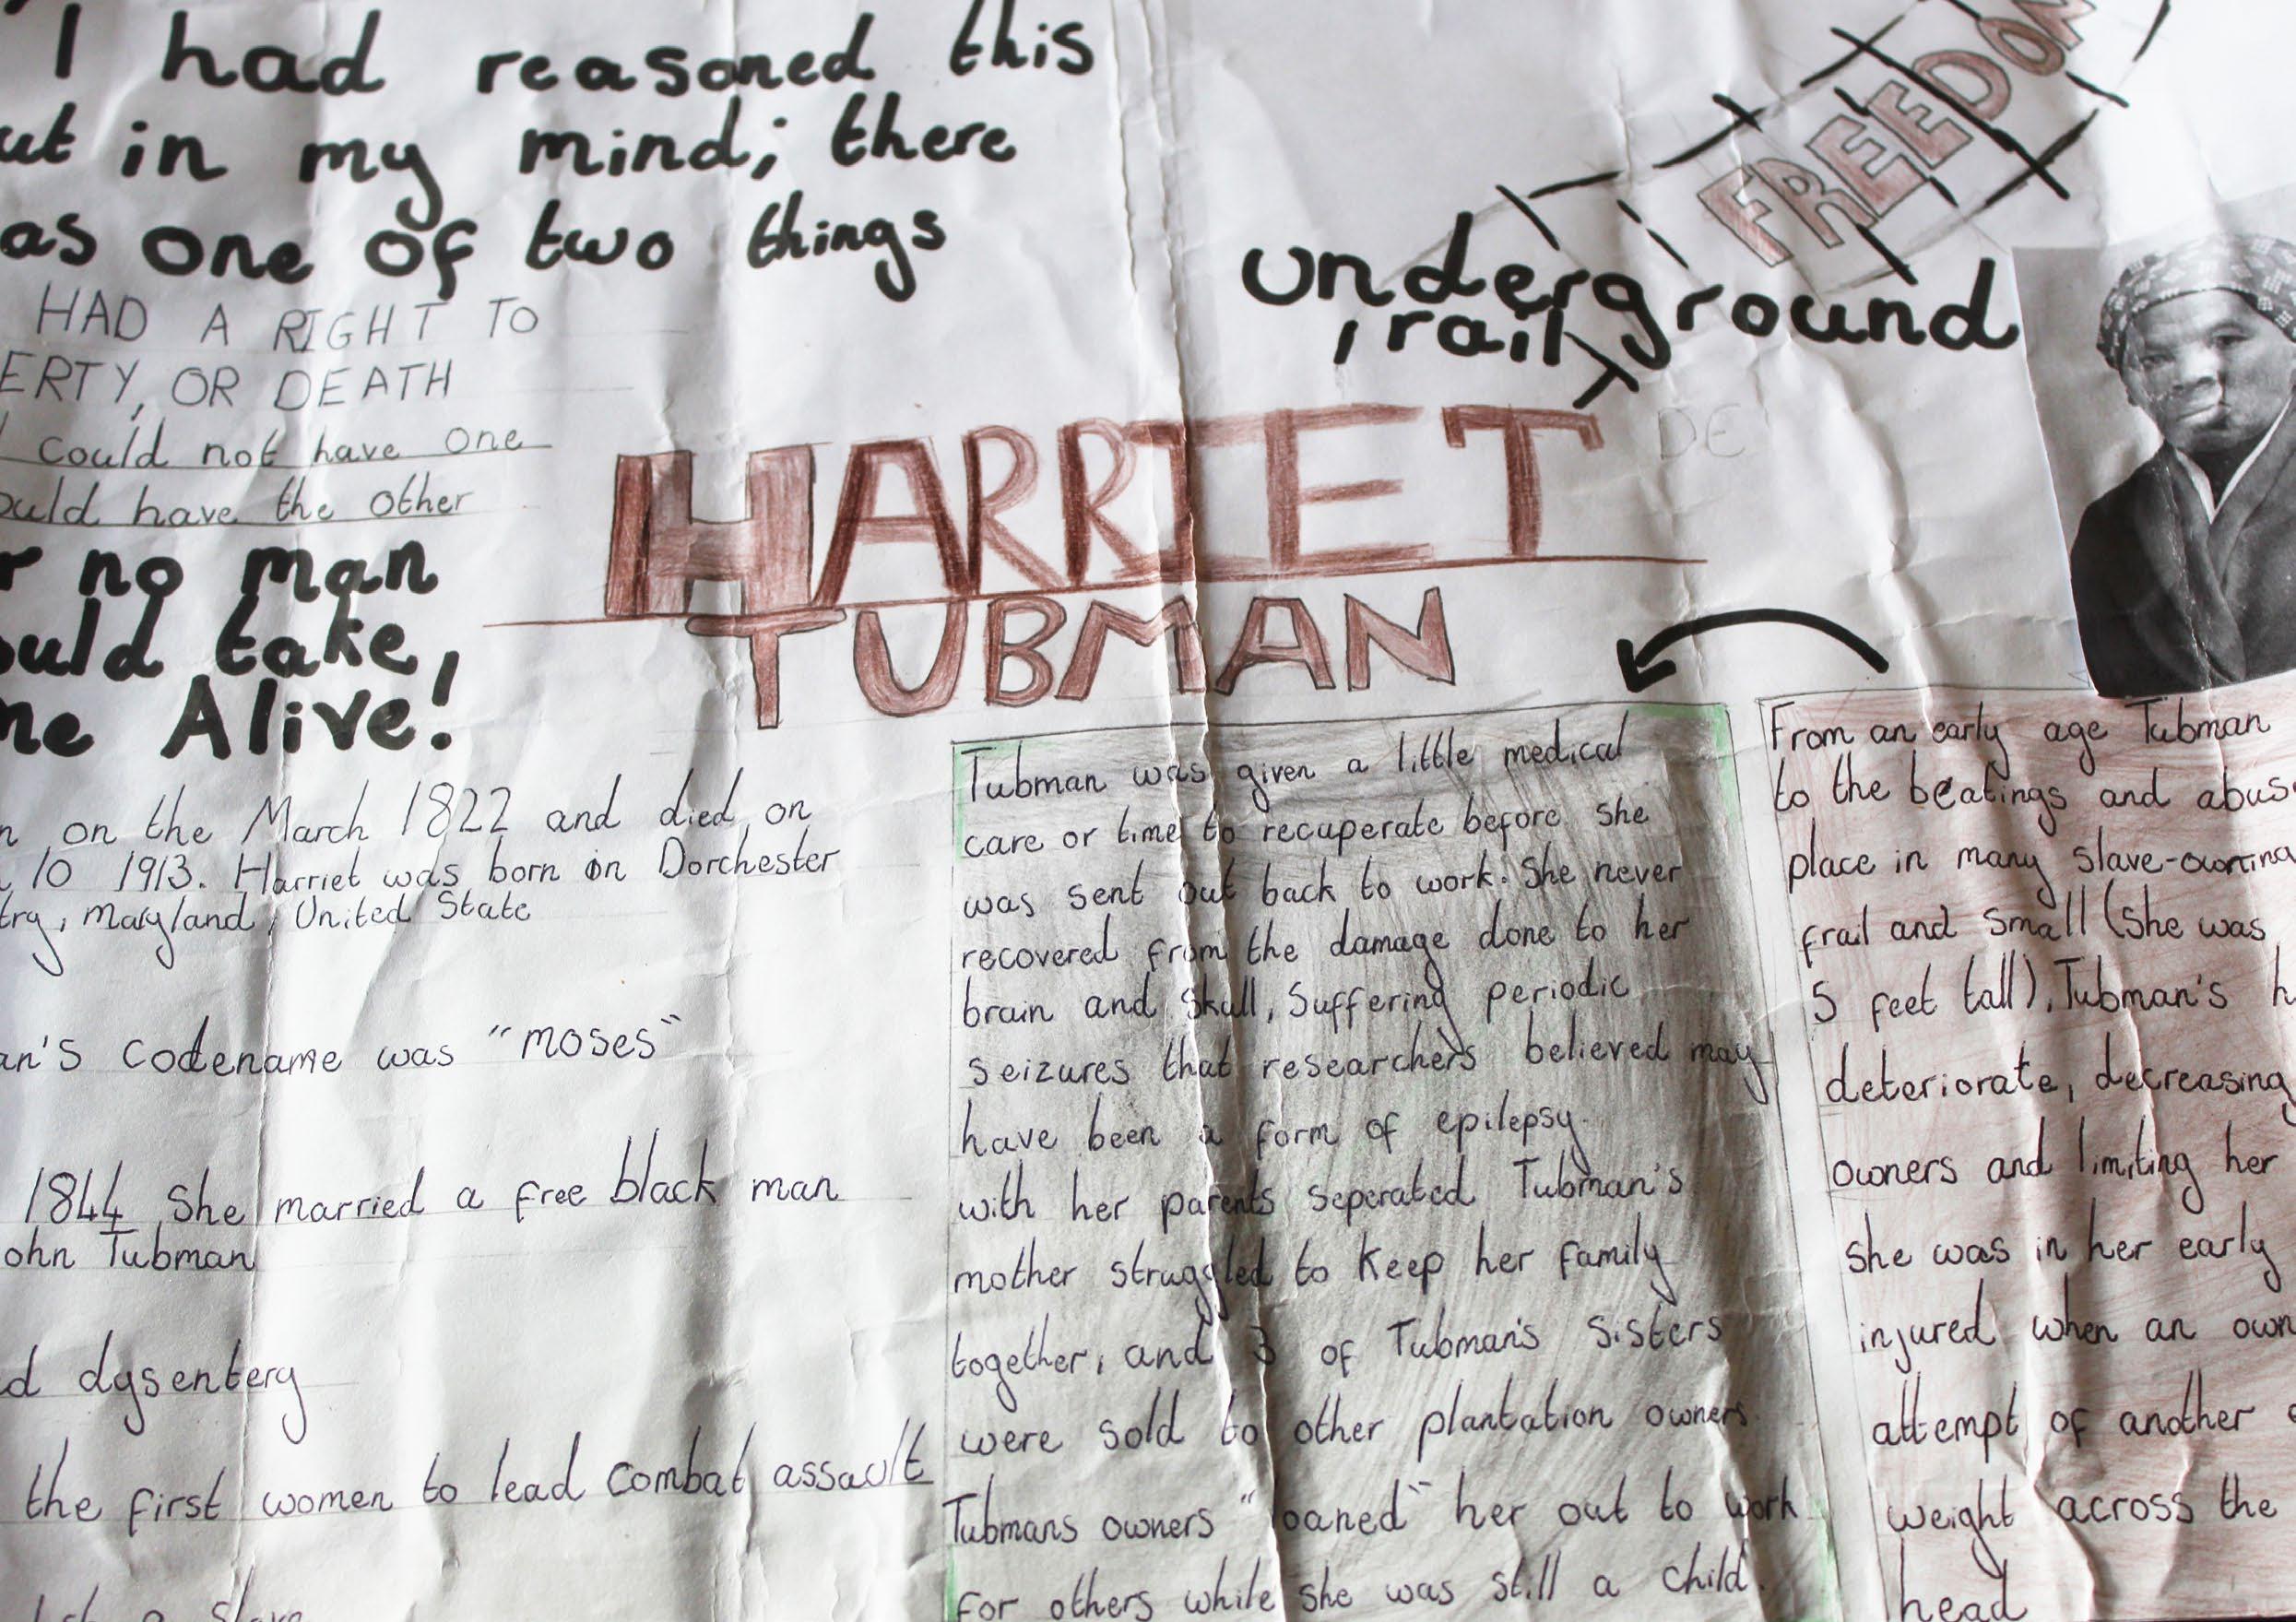 "I had reasoned this
ut in my mind; there
as one of two things
HAD A RIGHT TO
ERTY, OR DEATH
I could not have one
ould have the other
r no man
ould take,
me Alive!
FREEDOM
underground
rail
HARRIET
TUBMAN
DE
n on the March 1822 and died on
10 1913. Harriet was born in Dorchester
try, Maryland, United State
an's codename was "MOSES"
1844 She married a free black man
ohn Tubman
d dysentery
the first women to lead combat assault
a slave
Tubman was given a little medical
care or time to recuperate before she
was sent out back to work. She never
recovered from the damage done to her
brain and skull, suffering periodic
seizures that researchers believed may
have been a form of epilepsy.
with her parents seperated Tubman's
mother struggled to keep her family
together, and 3 of Tubman's sisters
were sold to other plantation owners
Tubmans owners "loaned" her out to work
for others while she was still a child.
From an early age Tubman
to the beatings and abus
place in many slave-owning
frail and small (she was
5 feet tall), Tubman's h
deteriorate, decreasing
owners and limiting her
she was in her early
injured when an own
attempt of another
weight across the
head